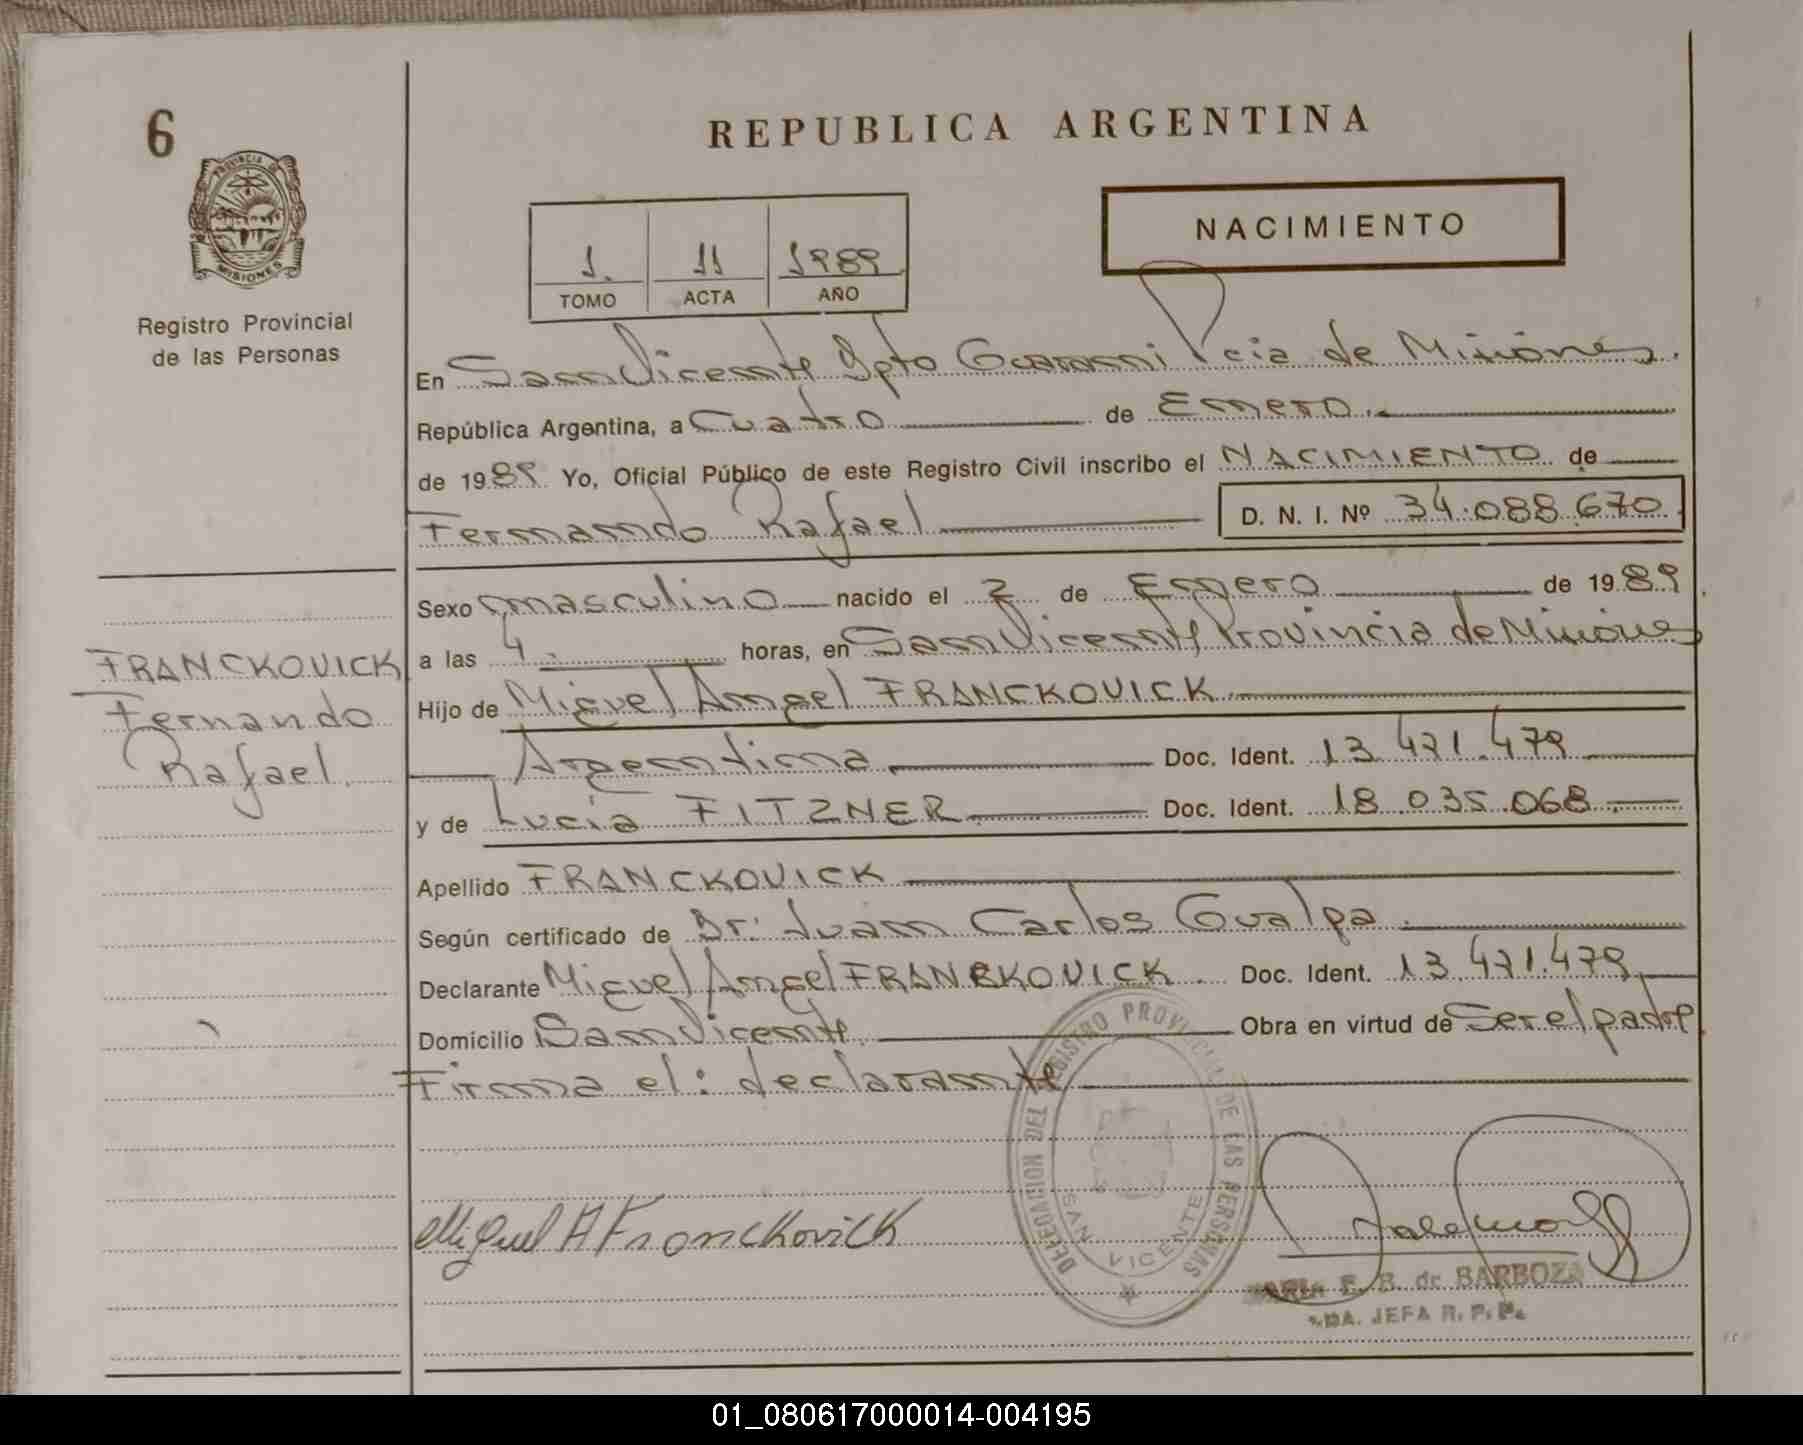 6
REPUBLICA ARGENTINA
PROVINCIA DE
MISIONES
Registro Provincial
de las Personas
1. 11 1989
TOMO ACTA AÑO
NACIMIENTO
En San Vicente Dpto Guarani Pcia de Misiones.
República Argentina, a Cuatro de Enero.
de 1989 Yo, Oficial Público de este Registro Civil inscribo el NACIMIENTO de
Fernando Rafael D. N. I. Nº 34.088.670.
Sexo masculino nacido el 2 de Enero de 1989
a las 4. horas, en San Vicente Provincia de Misiones
Hijo de Miguel Angel FRANCKOVICK
Argentina Doc. Ident. 13.471.479
y de Lucía FITZNER Doc. Ident. 18.035.068
Apellido FRANCKOVICK
Según certificado de Dr: Juan Carlos Gualpa
Declarante Miguel Angel FRANCKOVICK Doc. Ident. 13.471.479
Domicilio San Vicente Obra en virtud de Ser el padre
Firma el: declarante
FRANCKOVICK
Fernando
Rafael
Miguel A Franckovick
DELEGACION DEL REGISTRO PROVINCIAL DE LAS PERSONAS
SAN VICENTE
E. B. de BARBOZA
JEFA R. P. P.
01_080617000014-004195